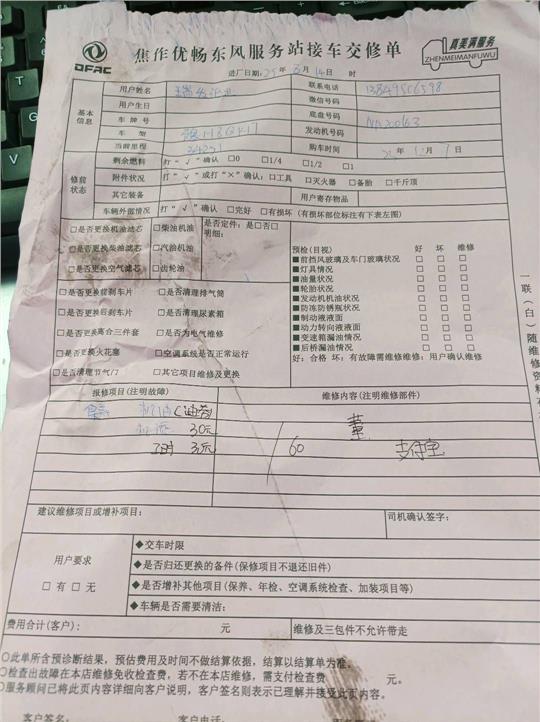 DFAC
焦作优畅东风服务站接车交修单
真美满服务
ZHENMEIMANFUWU
进厂日期:25年3月14日 时
基本信息
用户姓名 联系电话
用户生日 微信号码
车牌号 底盘号码
车架 发动机号码
当前里程 34251 购车时间 年 月 日
修前状态
剩余燃料 打“√”确认 □0 □1/4 □1/2 □1
附件状况 打“√”或打“×”确认:□工具 □灭火器 □备胎 □千斤顶
其它装备 用户寄存物品
车辆外部情况 打“√”确认 □完好 □有损坏(有损坏部位标注有下表左图)
□是否更换机油滤芯 □柴油机油 是否定件:是□否□
□是否更换柴油滤芯 □汽油机油 明细:
□是否更换空气滤芯 □齿轮油
□是否更换前刹车片 □是否清理排气筒
□是否更换后刹车片 □是否清理尿素箱
□是否更换离合三件套 □是否为电气维修
□是否更换火花塞 □空调系统是否正常运行
□是否清理节气/7 □其它项目维修及更换
预检(目视) 好 坏 维修
■前挡风玻璃及车门玻璃状况 □ □ □
■灯具情况 □ □ □
■油量状况 □ □ □
■轮胎状况 □ □ □
■发动机机油状况 □ □ □
■防冻防锈瓶状况 □ □ □
■制动液液面 □ □ □
■动力转向液液面 □ □ □
■变速箱漏油情况 □ □ □
■后桥漏油情况 □ □ □
好:合格 坏:有故障需维修维修:用户确认维修
一联(白)随维修资料
报修项目(注明故障) 维修内容(注明维修部件)
机油 30元
工时 30元 60 支付宝
建议维修项目或增补项目: 司机确认签字:
用户要求
□ 有 □ 无
◆交车时限
◆是否归还更换的备件(保修项目不退还旧件)
◆是否增补其他项目(保养、年检、空调系统检查、加装项目等)
◆车辆是否需要清洁:
费用合计(客户): 元 维修及三包件不允许带走
○此单所含预诊断结果,预估费用及时间不做结算依据,结算以结算单为准。
○检查出故障在本店维修免收检查费,若不在本店维修,需支付检查费 元。
○服务顾问已将此页内容详细向客户说明,客户签名则表示已理解并接受此页内容。
客户签名: 客户电话: